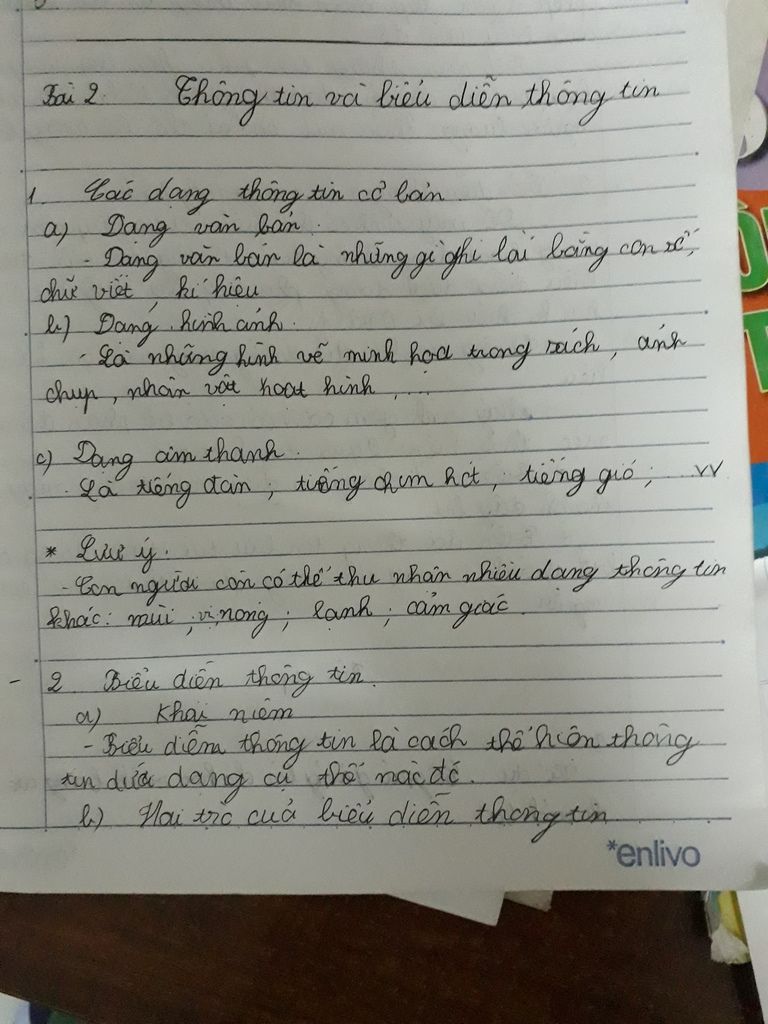 Bài 2. Thông tin và biểu diễn thông tin
1. Các dạng thông tin cơ bản.
a) Dạng văn bản.
- Dạng văn bản là những gì ghi lại bằng con số,
chữ viết, kí hiệu
b) Dạng hình ảnh.
- Là những hình vẽ minh họa trong sách, ảnh
chụp, nhân vật hoạt hình, ...
c) Dạng âm thanh.
- Là tiếng đàn; tiếng chim hót; tiếng gió; vv
* Lưu ý.
- Con người còn có thể thu nhận nhiều dạng thông tin
khác: mùi; vị; nóng; lạnh; cảm giác.
- 2. Biểu diễn thông tin.
a) Khái niệm
- Biểu diễn thông tin là cách thể hiện thông
tin dưới dạng cụ thể nào đó.
b) Vai trò của biểu diễn thông tin
*enlivo